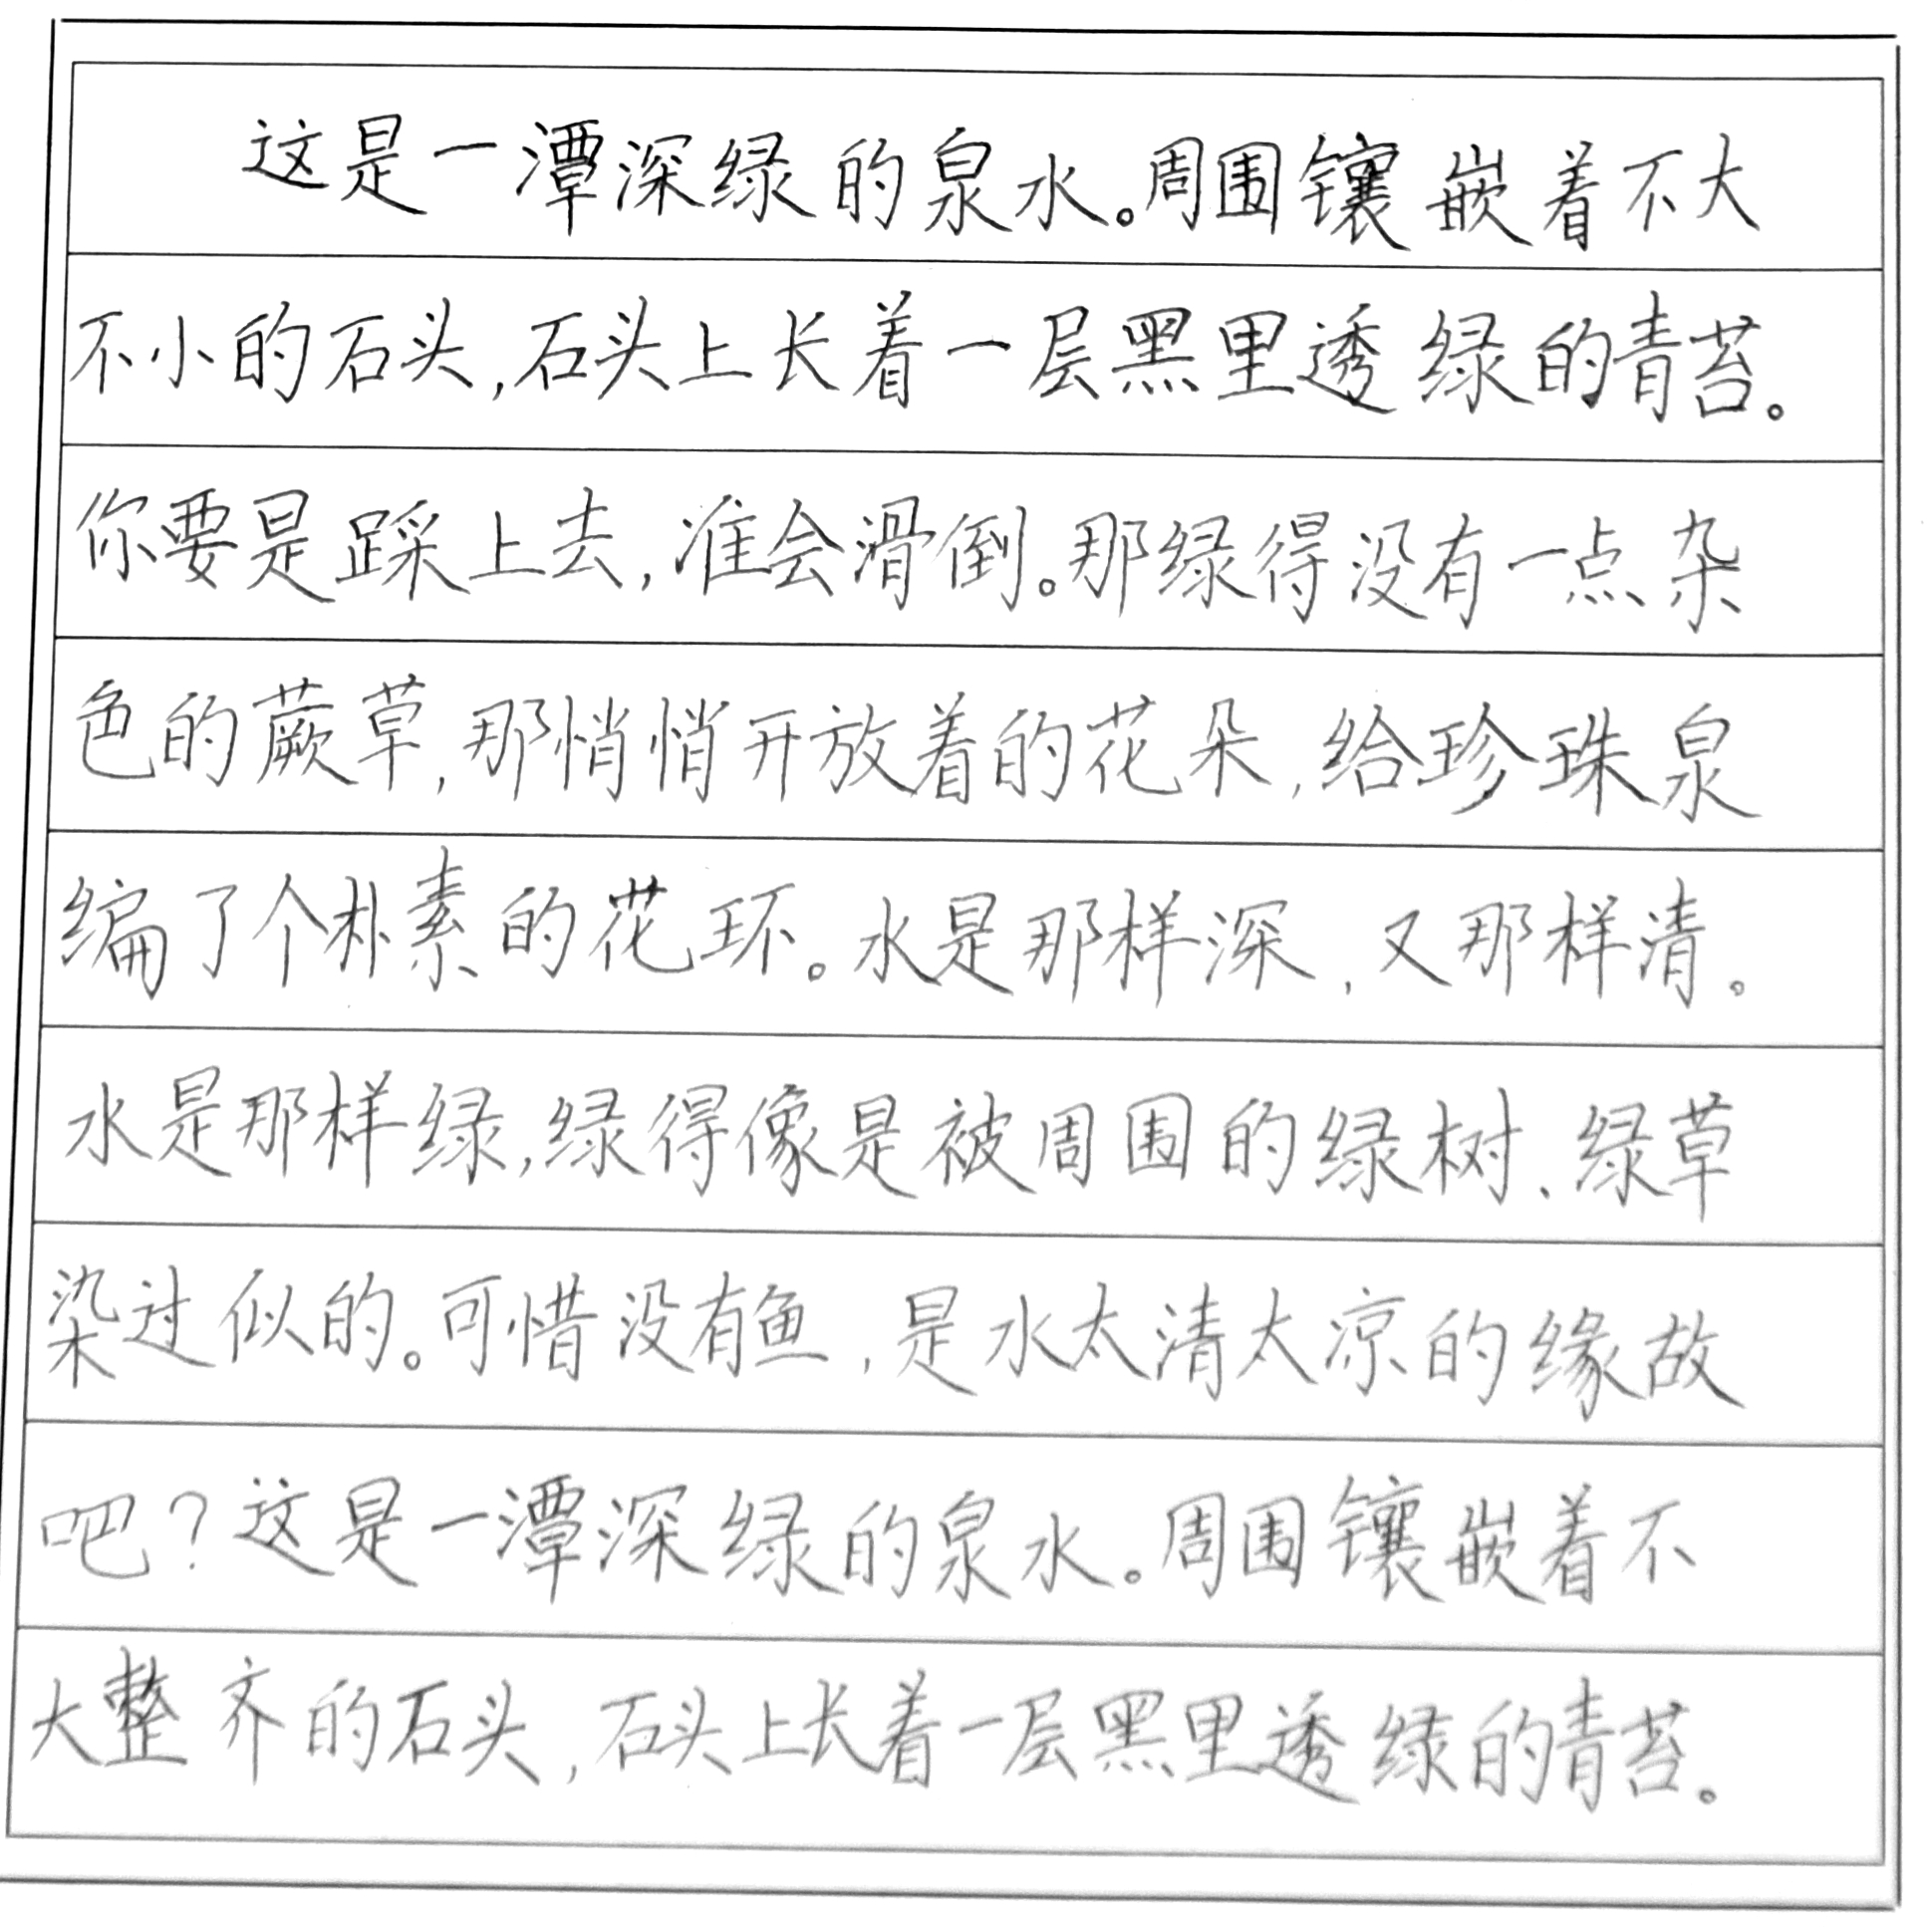 这是一潭深绿的泉水。周围镶嵌着不大
不小的石头,石头上长着一层黑里透绿的青苔。
你要是踩上去,准会滑倒。那绿得没有一点杂
色的蕨草,那悄悄开放着的花朵,给珍珠泉
编了个朴素的花环。水是那样深,又那样清。
水是那样绿,绿得像是被周围的绿树、绿草
染过似的。可惜没有鱼,是水太清太凉的缘故
吧?这是一潭深绿的泉水。周围镶嵌着不
大整齐的石头,石头上长着一层黑里透绿的青苔。